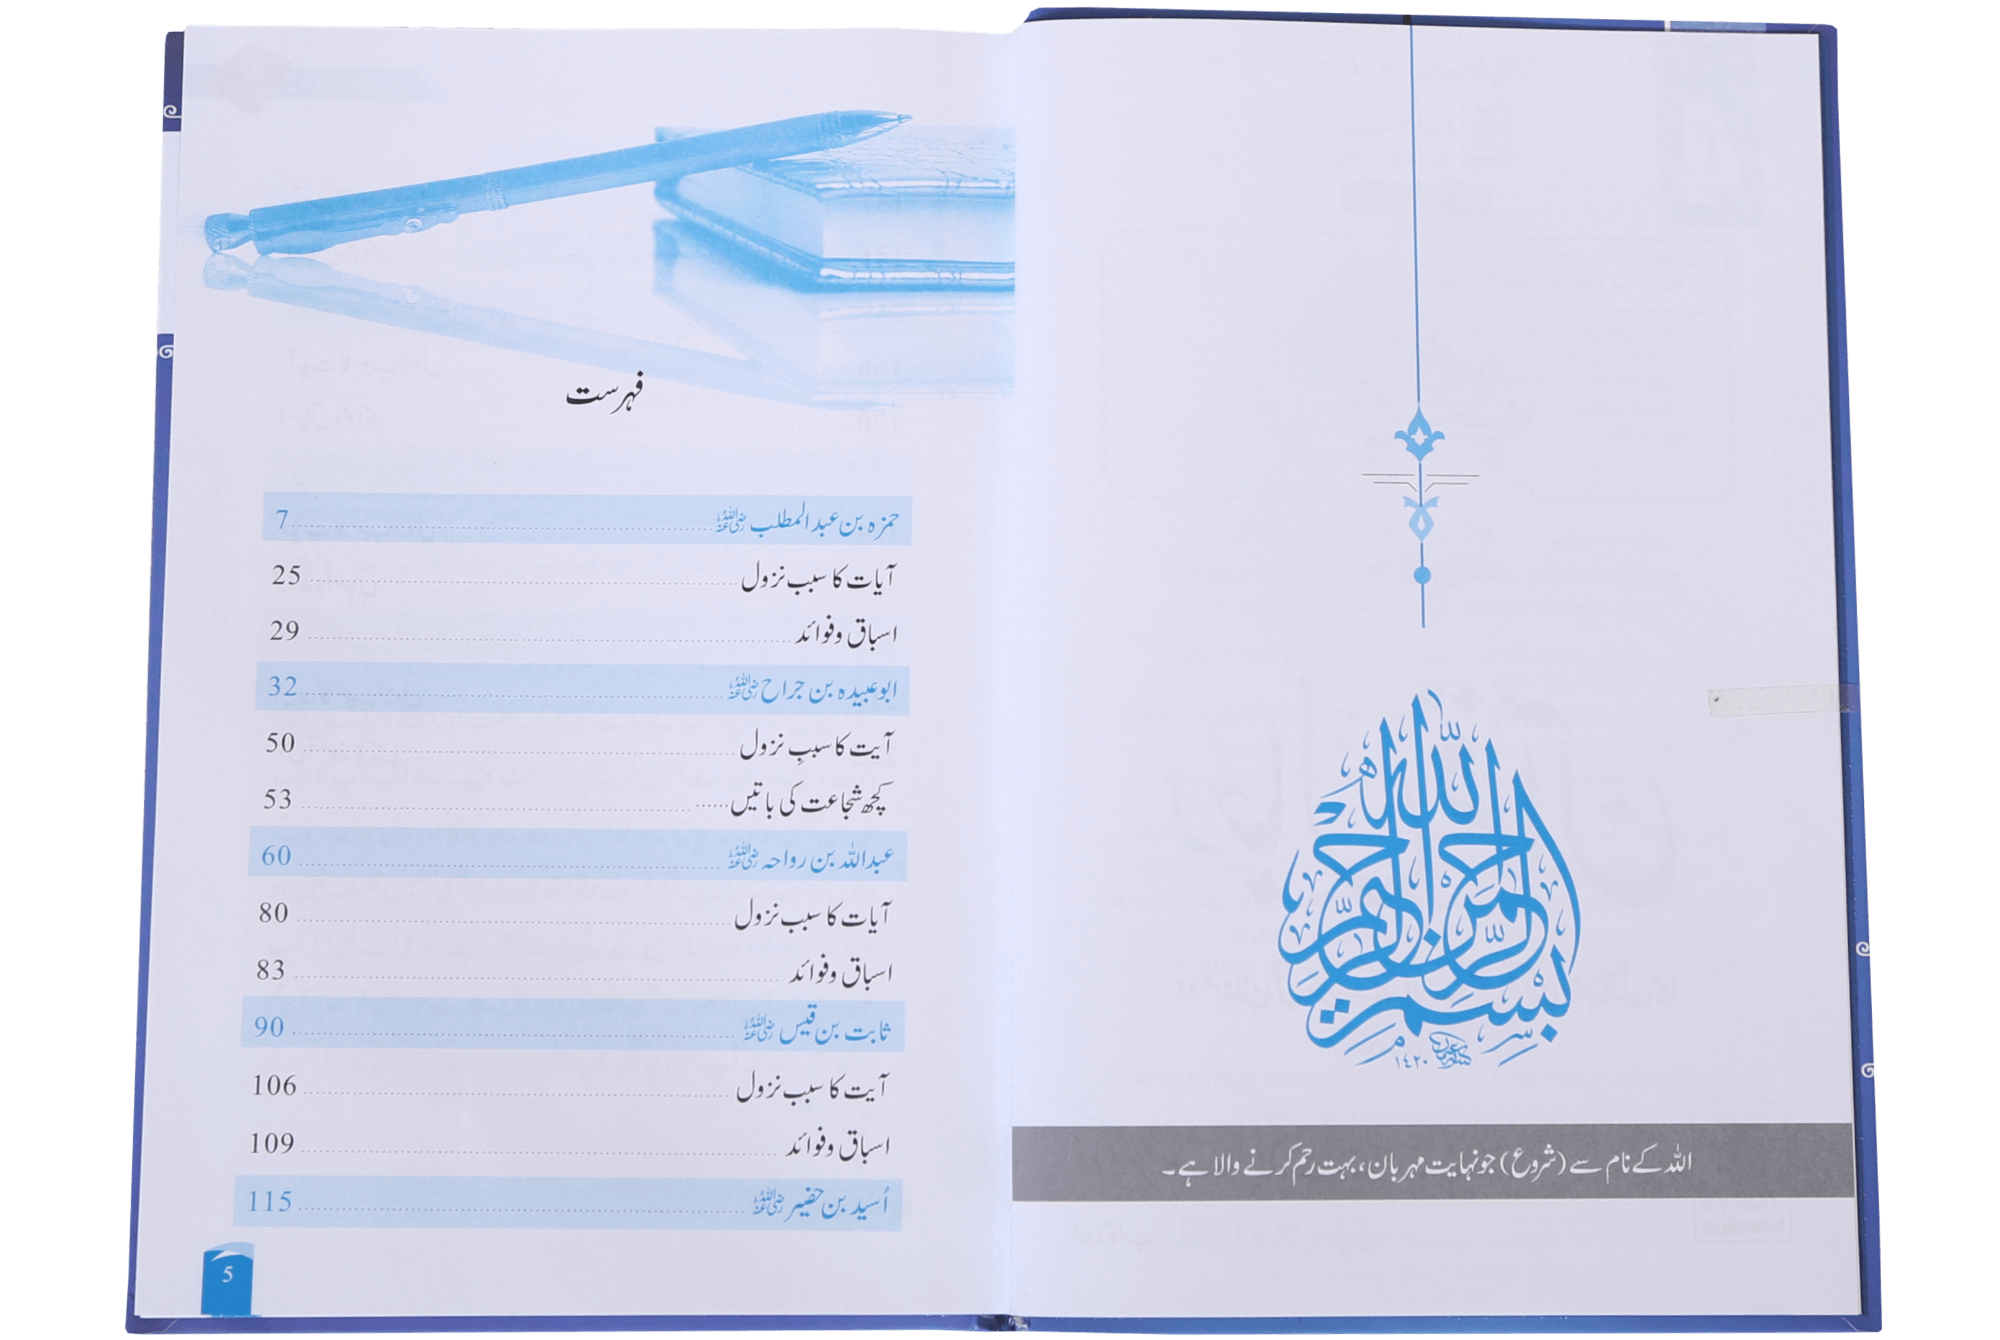 بسم الله الرحمن الرحيم
١٤٢٠
اللہ کے نام سے (شروع) جو نہایت مہربان، بہت رحم کرنے والا ہے۔
فہرست
حمزہ بن عبدالمطلب رضی اللہ عنہ 7
آیات کا سبب نزول 25
اسباق و فوائد 29
ابوعبیدہ بن جراح رضی اللہ عنہ 32
آیت کا سببِ نزول 50
کچھ شجاعت کی باتیں 53
عبداللہ بن رواحہ رضی اللہ عنہ 60
آیات کا سبب نزول 80
اسباق و فوائد 83
ثابت بن قیس رضی اللہ عنہ 90
آیت کا سبب نزول 106
اسباق و فوائد 109
اُسید بن حضیر رضی اللہ عنہ 115
5